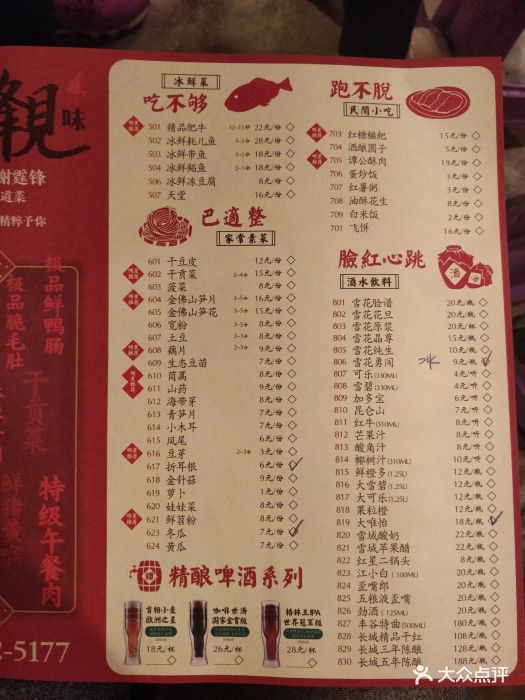 味
谢霆锋
道菜
精粹予你
极品鲜鸭肠
极品脆毛肚
特级午餐肉
2-5177
冰鲜菜
吃不够
501 精品肥牛 22元/份
502 冰鲜耗儿鱼 3-5 28元/份
503 冰鲜带鱼 3-5 18元/份
504 冰鲜鲳鱼 2-3 18元/份
505 冰鲜冻豆腐 8元/份
507 天堂 16元/份
巴適整
家常素菜
601 干豆皮 12元/份
602 干贡菜 2-4 15元/份
603 菠菜 8元/份
604 金佛山笋片 3-5 16元/份
605 金佛山笋花 3-5 15元/份
606 宽粉 8元/份
607 土豆 2-3 8元/份
608 藕片 2-3 9元/份
609 生态豆苗 7元/份
610 茼蒿 8元/份
611 山药 9元/份
612 海带芽 8元/份
613 青笋片 7元/份
614 小木耳 7元/份
615 凤尾 6元/份
616 豆芽 2-3 3元/份
617 折耳根 6元/份
618 金针菇 9元/份
619 萝卜 1元/份
620 娃娃菜 8元/份
621 鲜苕粉 8元/份
623 冬瓜 7元/份
624 黄瓜 7元/份
跑不脱
民间小吃
703 红糖糍粑 15元/份
704 酒酿圆子 5元/份
705 谭公酥肉 19元/份
706 蛋炒饭 3元/份
707 红薯粥 3元/份
708 油酥花生 8元/份
709 白米饭 2元/份
701 飞饼 16元/份
臉紅心跳
酒水飲料
酒
801 雪花脸谱 20元/瓶
802 雪花花旦 20元/瓶
803 雪花原浆 20元/杯
804 雪花晶尊 15元/瓶
805 雪花纯生 10元/瓶
806 雪花勇闯 冰 9元/瓶
807 可乐(330ML) 4元/听
808 雪碧(330ML) 4元/听
809 加多宝 6元/听
810 昆仑山 7元/瓶
811 红牛(310ML) 9元/听
812 芒果汁 8元/听
813 酸角汁 8元/听
814 椰树汁(310ML) 10元/听
815 鲜橙多(1.25L) 12元/瓶
816 大雪碧(1.25L) 12元/瓶
817 大可乐(1.25L) 12元/瓶
818 果粒橙 12元/瓶
819 大唯怡 18元/瓶
820 雪域酸奶 7元/瓶
821 雪域苹果醋 12元/瓶
822 红星二锅头 8元/瓶
823 江小白(100ML) 20元/瓶
824 歪嘴郎 20元/瓶
825 五粮液歪嘴 20元/瓶
826 劲酒(125ML) 20元/瓶
827 丰谷特曲(500ML) 108元/瓶
828 长城精品干红 188元/瓶
829 长城三年陈酿 128元/瓶
830 长城五年陈酿 188元/瓶
精酿啤酒系列
首相小麦
欧洲之星
18元/杯
咖啡世涛
国家金奖级
26元/杯
格林王IPA
世界冠军级
28元/杯
大众点评